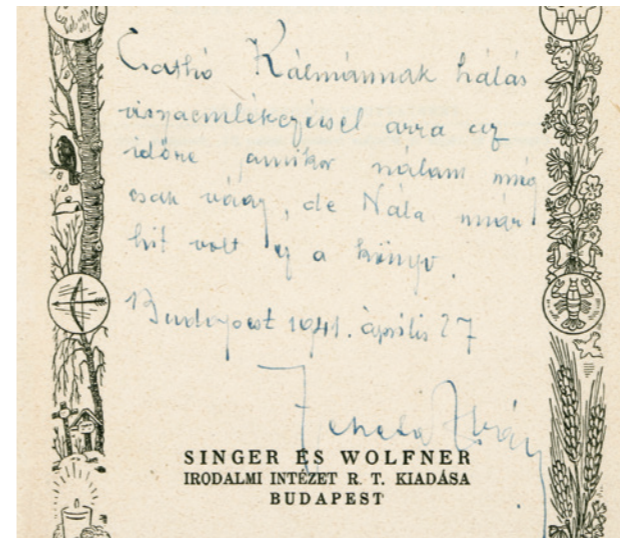 Csathó Kálmánnak hálás
visszaemlékezéssel arra az
időre amikor nálam még
csak vágy, de Nála már
hit volt ez a könyv.
Budapest 1941. április 27
Fekete István
SINGER ÉS WOLFNER
IRODALMI INTÉZET R. T. KIADÁSA
BUDAPEST